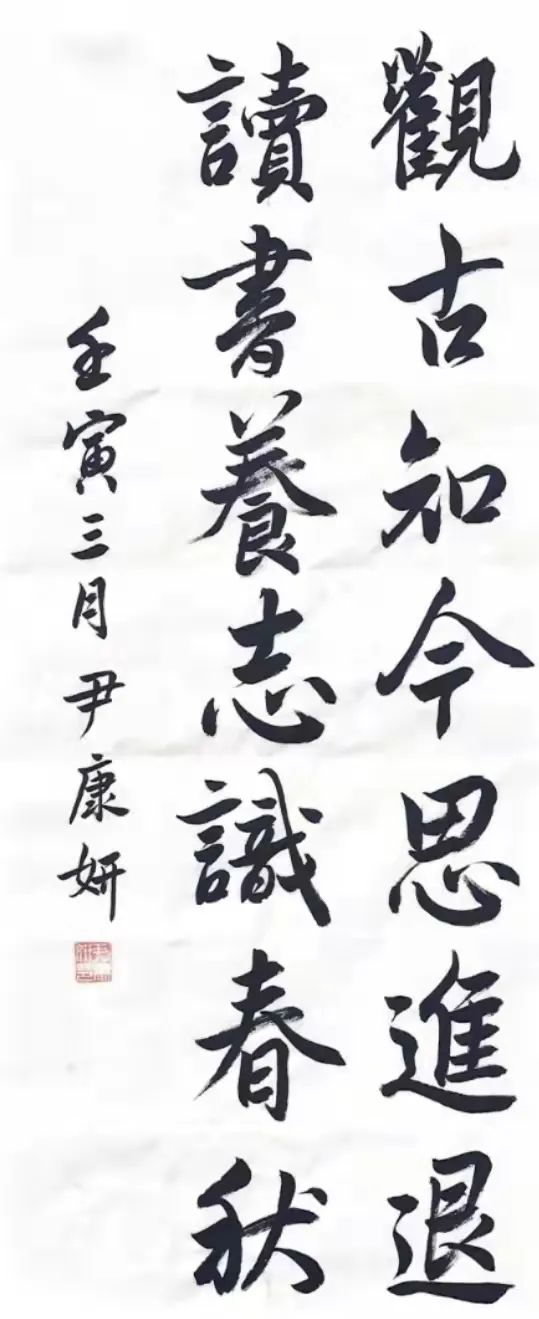 觀古知今思進退
讀書養志識春秋
壬寅三月尹康妍